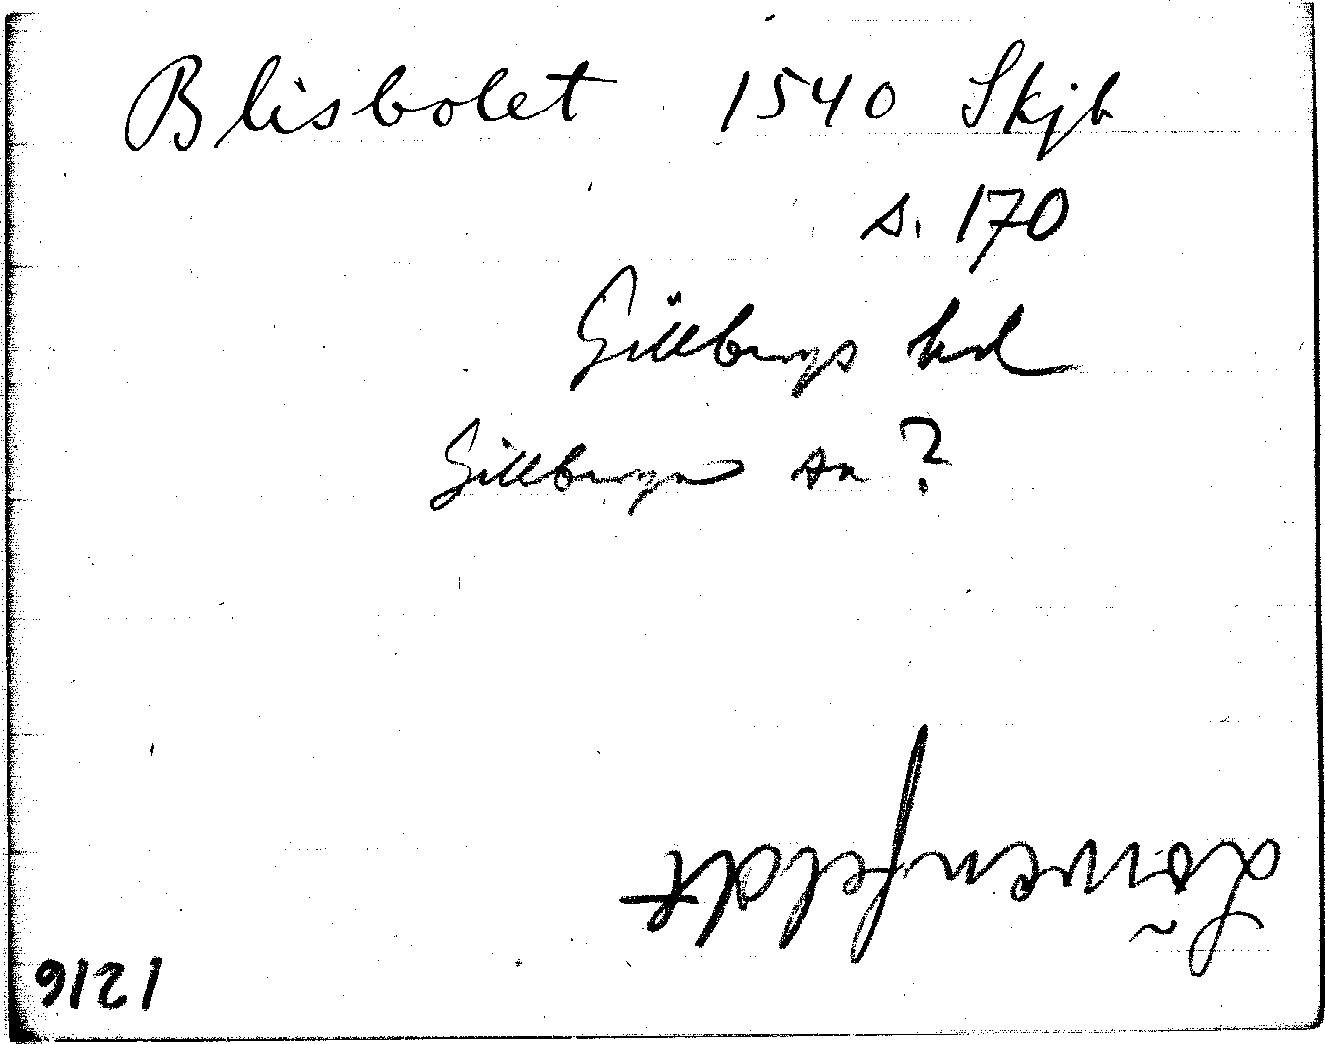 Blisbolet 1540 Skjb
s. 170
Gillbergs hd
Gillberga sn?
Löwenfeldt
1216